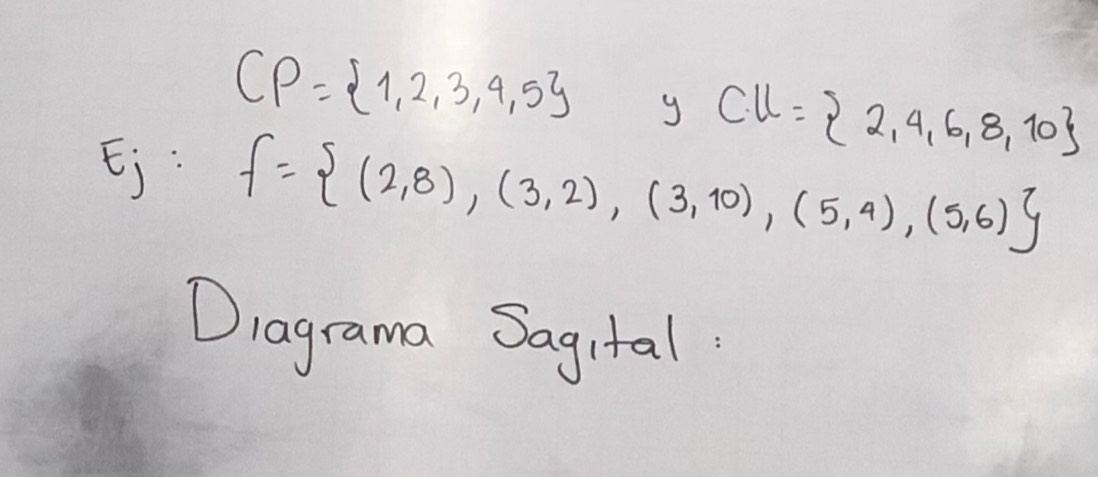 CP={1,2,3,4,5} y CU={2,4,6,8,10}
Ej: f={(2,8),(3,2),(3,10),(5,4),(5,6)}
Diagrama Sagital: